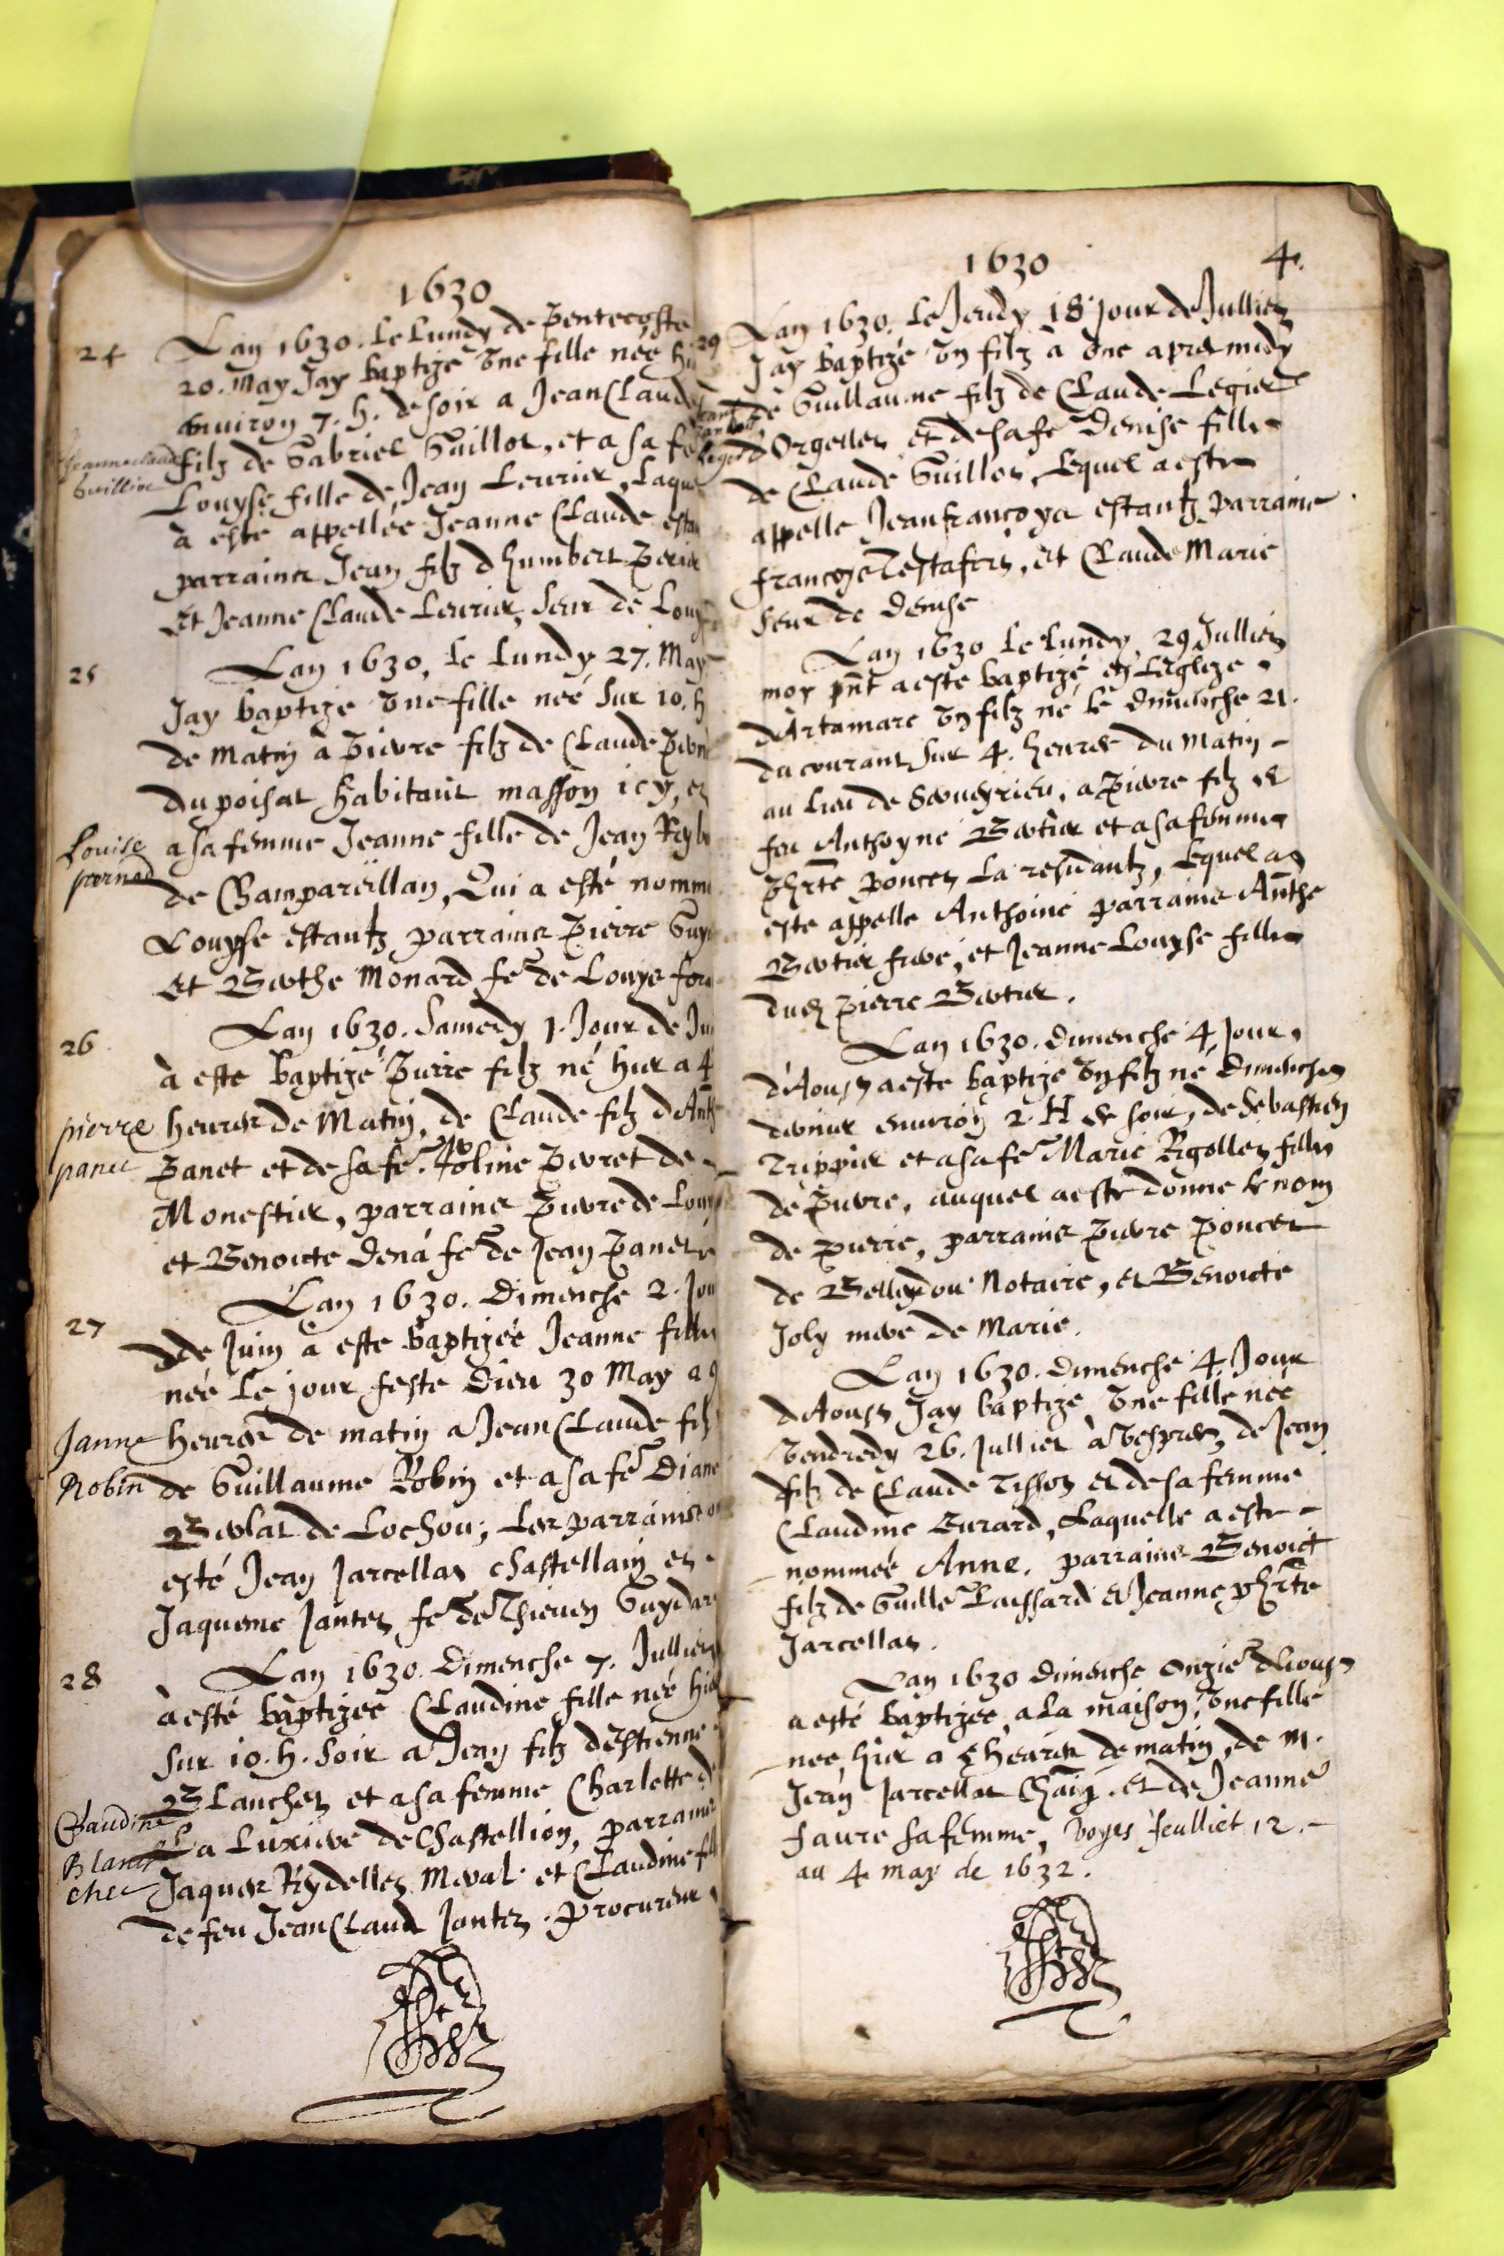 1630
24
Lan 1630. Le Lundy de Pentecoste
20. May Jay baptizé Une fille née hi
environ 7. h. de soir a Jean Claude
Jeanne claude
Guillot
filz de Gabriel Guillot, et a sa fe
Louyse fille de Jean Levrier, Laque
à este appellée Jeanne Claude estan
parrains Jean filz d humbert
Et Jeanne Claude Levrier, seur de Louy
25
Lan 1630, Le Lundy 27. May
Jay baptizé Une fille neé sur 10. h
de Matin à Pierre filz de Claude
du poisat habitant masson icy, et
Louise
a sa femme Jeanne fille de Jean
de Champareillan, Qui a esté nommé
Louyse estantz parrains Pierre Guy
Et Berthe Monard fe de Louys
26
Lan 1630. Samedy 1. Jour de Jui
à este Baptizé Pierre filz né hier a 4
pierre
panet
heures de Matin, de Claude filz d Anth
Panet et de sa fe. Perret de
Monestier, parrains Pierre de Louy
et Benoicte fe de Jean Panet
27
Lan 1630. Dimenche 2. Jou
de Juin a este baptizée Jeanne fille
née Le jour feste Dieu 30 May a 9
Janne
Robin
heures de matin a Jean Claude filz
de Guillaume Robin et a sa fe Diane
de Lochou; Les parrains
esté Jean Jarcellat chastellain et
Jaqueme Jantet fe de Thieven Guydar
28
Lan 1630. Dimenche 7. Jullier
à esté baptizée Claudine fille née hie
sur 10. h. soir a Jean filz destienne
Blanchet et a sa femme Charlette d
Claudine
Blan
chet
La Luxiere de Chastellion, parrains
Jaques Rydellet et Claudine fill
de feu Jean Claud Jantet. Procureur
1630
4.
29
Lan 1630. Le Jeudy 18 jour de Jullier
Jay baptizé Un filz à Une apres midy
de Guillaume filz de Claude Legier
d Orgellet et de sa fe Denise fille
de Claude Guillot, Lequel a este
appelle Jean françoys estantz parrains
françoys Testafort, et Claude Marie
seur de Denise
Lan 1630 Le Lundy, 29 Jullier
moy pnt a este baptizé en Leglize
d'Artamare Un filz né le dimenche 21.
du courant sur 4. heures du matin
au Lieu de, a Pierre filz de
feu Anthoyne Bertier et a sa femme
poncet La residantz, Lequel a
este appelle Anthoine parrains Anthe
Bertier frere, et Jeanne Louyse fille
dud Pierre Bertier.
Lan 1630. Dimenche 4 Jour
d'Aoust a este baptizé Un filz né dimenche
dernier environ 2. H de soir, de Sebastien
Trippier et a sa fe Marie Rigollet fille
de Pierre, auquel a este donne le nom
de Pierre, parrains Pierre Poncet
de Belleydou Notaire, et Benoicte
Joly mere de Marie.
Lan 1630. dimenche 4. Jour
d'Aoust Jay baptizé Une fille née
Vendredy 26. Jullier à Vespres, de Jean
filz de Claude Tissot et de sa femme
Claudine Burard, Laquelle a este
nommée Anne. parrains Benoict
filz de Guille et Jeanne
Jarcellat.
Lan 1630 Dimenche Onzie d'Aoust
a esté baptizée a La maison, Une fille
nee, hier a heures de matin, de M.
Jean Jarcellat et de Jeanne
faure sa femme, voyes feulliet 12.
au 4 may de 1632.